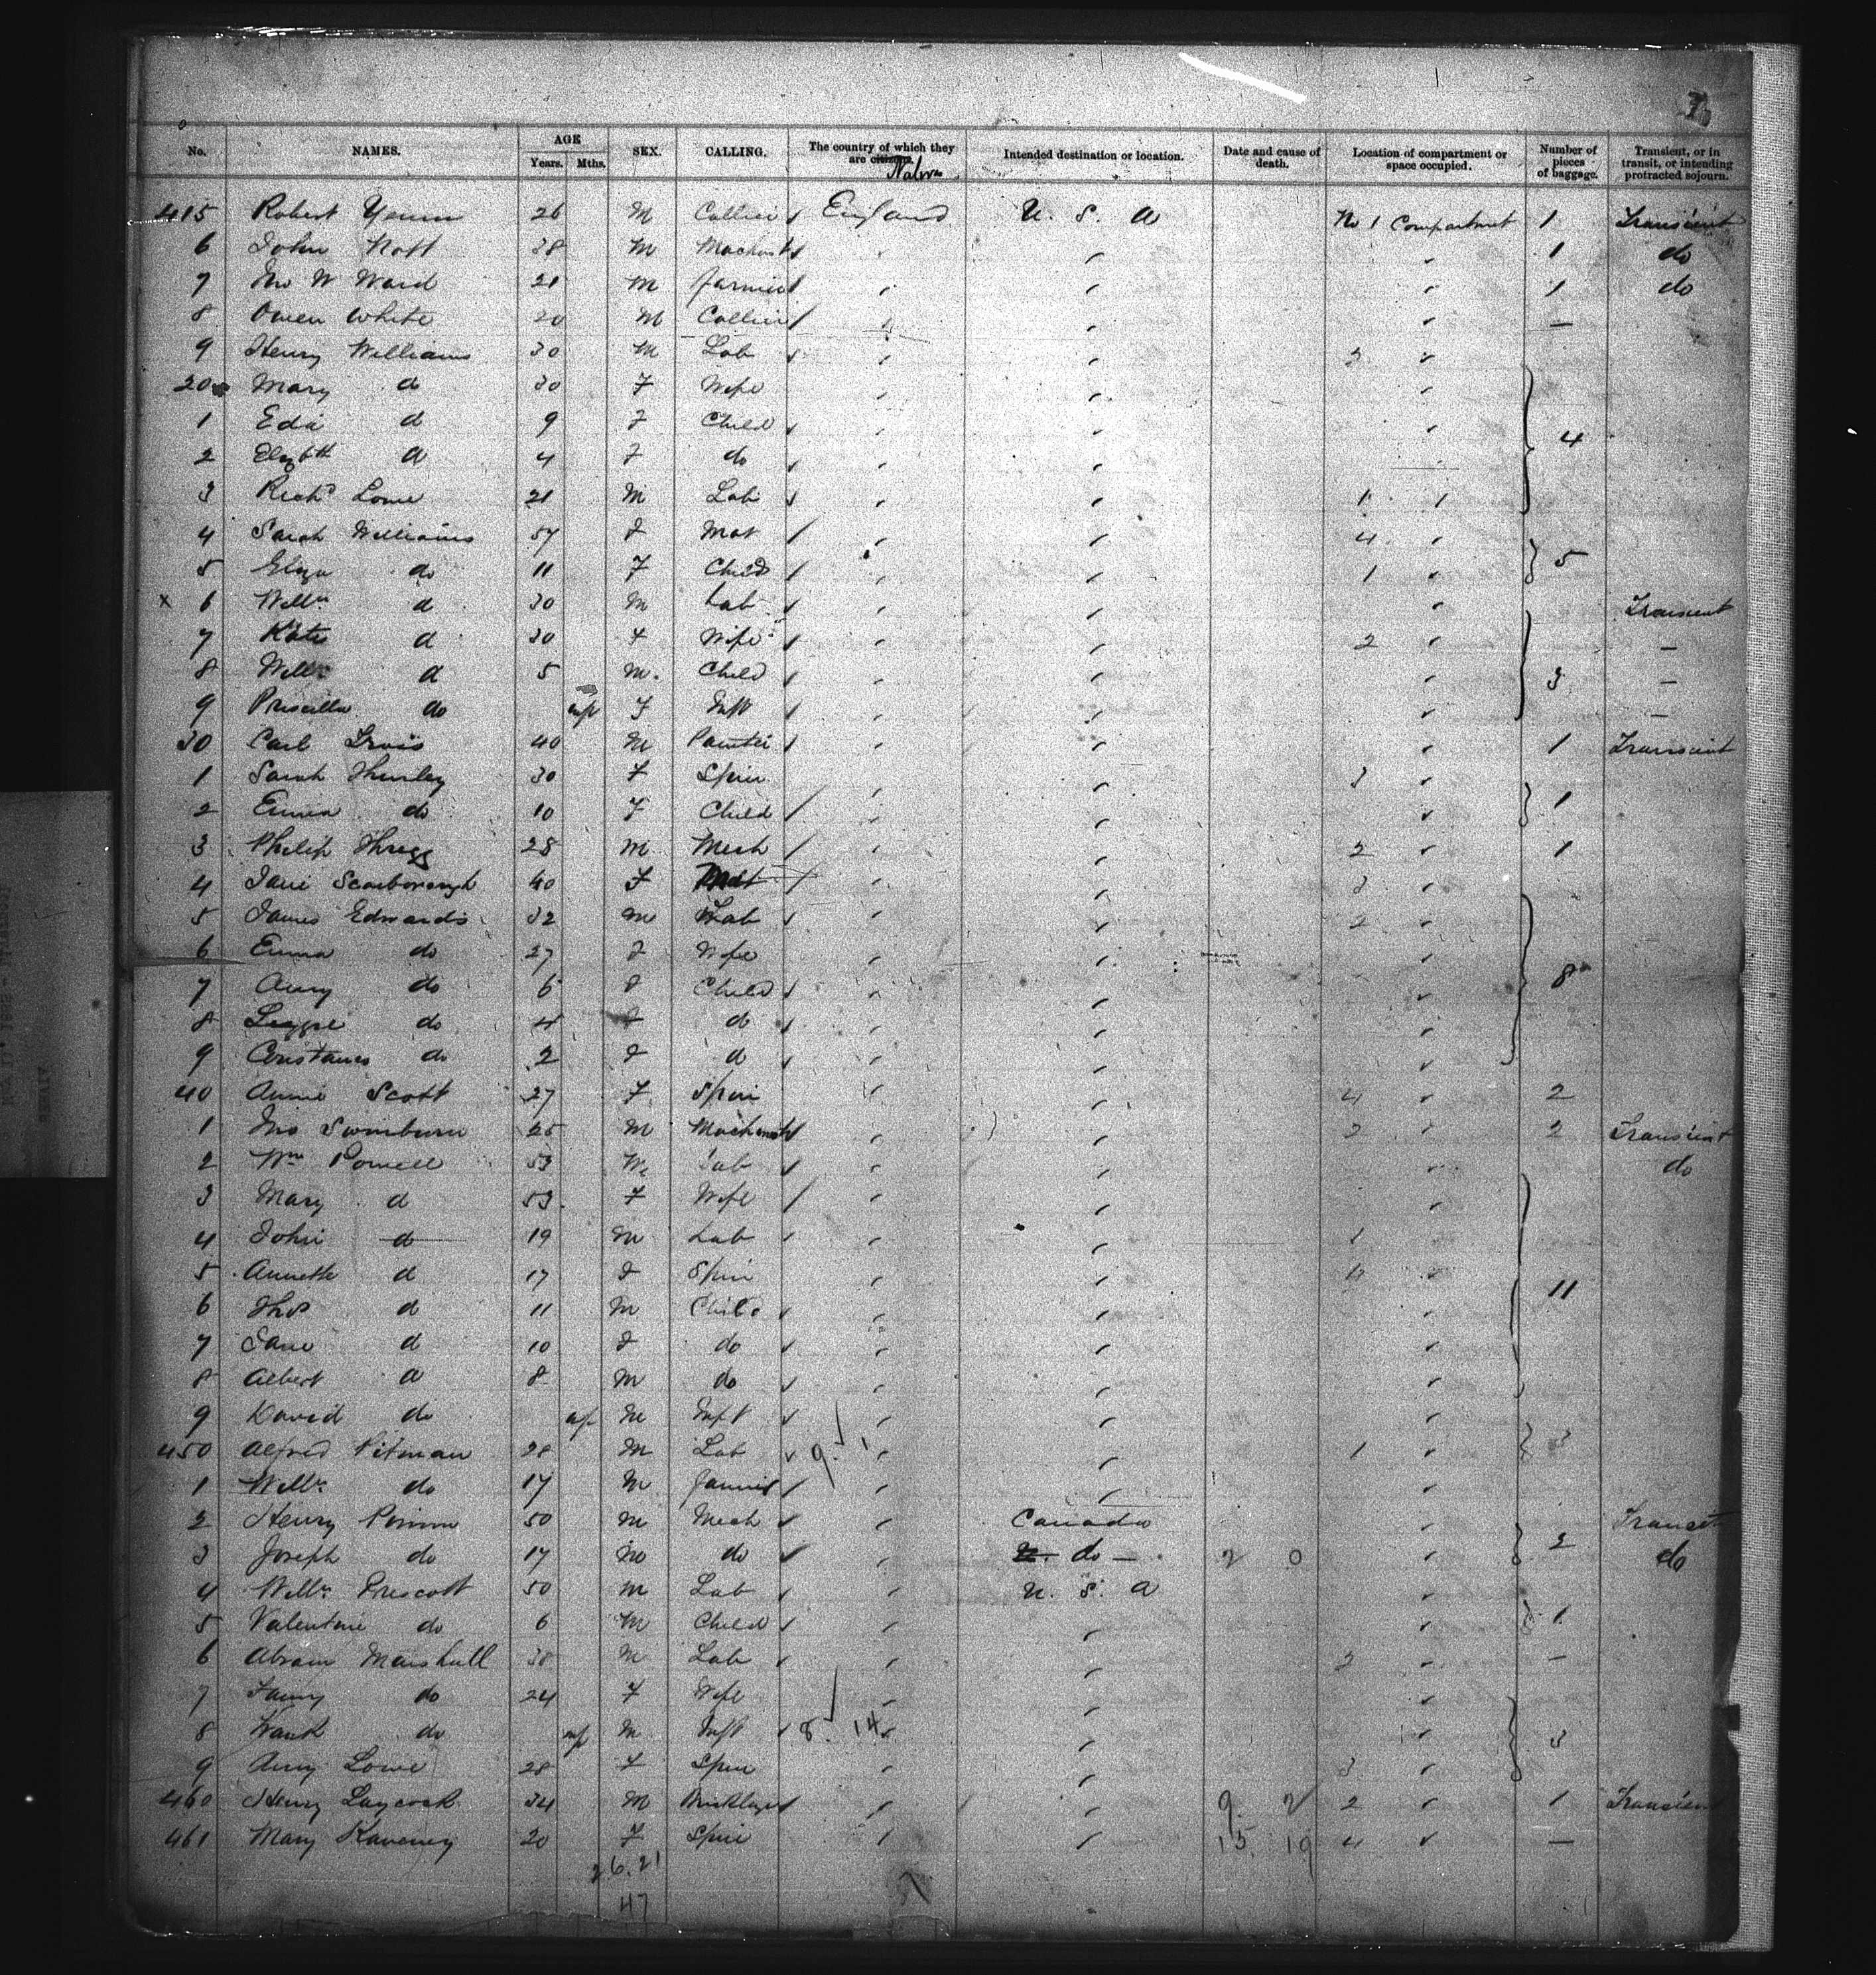 No. NAMES. AGE Years. Mths. SEX. CALLING. The country of which they are citizens. Natives Intended destination or location. Date and cause of death. Location of compartment or space occupied. Number of pieces of baggage. Transient, or in transit, or intending protracted sojourn.
415 Robert 26 M Collier England U. S. A No 1 Compartment 1 Transient
6 John Nott 38 M Machinist 1 do
7 Jno W Ward 21 M Farmer 1 do
8 Owen White 20 M Collier —
9 Henry Williams 30 M Lab 2
20 Mary d 30 F Wife
1 Eda d 9 F Child 4
2 Elizbth d 4 F do
3 Richd Lowe 21 M Lab 1
4 Sarah Williams 57 F Mat 4
5 Eliza do 11 F Child 1 5
x 6 Willm d 30 M Lab Transient
7 Kate d 30 F Wife 2 —
8 Willm d 5 M. Child 3 —
9 Priscilla do inf F Inft —
30 Carl 40 M Painter 1 Transient
1 Sarah Thurley 30 F Spin 3
2 Emma do 10 F Child 1
3 Philip Thregg 28 M Mech 2 1
4 Jane Scarborough 40 F Mat 3
5 James Edwards 32 M Lab 2
6 Emma do 27 F Wife
7 Amy do 6 F Child 8
8 do 4 F do
9 Constance do 2 F d
40 Annie Scott 27 F Spin 4 2
1 Jno Swinburn 25 M Machinist 2 2 Transient
2 Wm Powell 53 M Lab do
3 Mary d 53 F Wife
4 John d 19 M Lab 1
5 Annette d 17 F Spin 4
6 Thos d 11 M Child 11
7 Jane d 10 F do
8 Albert d 8 M do
9 David do inf M Inft
450 Alfred Pitman 28 M Lab 9 1 1 3
1 Willm do 17 M Farmer
2 Henry 50 M Mech Canada Transit
3 Joseph do 17 M do do — 2 0 2 do
4 Willm Prescott 50 M Lab U. S. A
5 Valentine do 6 M Child 1
6 Abram Marshall 38 M Lab 2 —
7 Fanny do 24 F Wife
8 do inf M Inft 8 14 3
9 Amy Lowe 28 F Spin 3
460 Henry Laycock 34 M Bricklayer 9. 2 2 1 Transient
461 Mary Kaveney 20 F Spin 15. 19 4 —
26.21
47